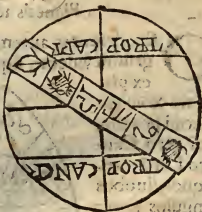 TROP CAPI
TROP CANC